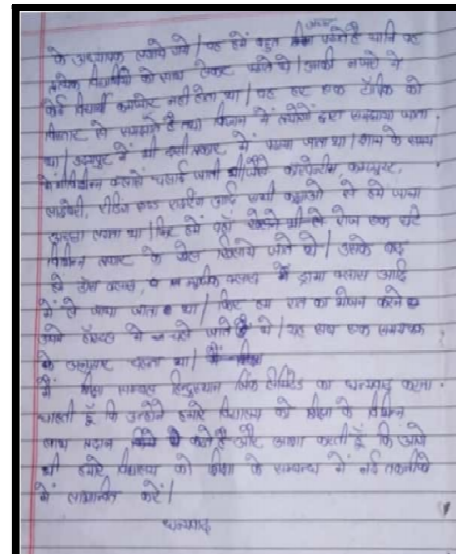 के अध्यापक लगाये गये। यह हमें बहुत अच्छा पढ़ाते हैं यानि वह
प्रत्येक विद्यार्थी को साथ लेकर चलते थे। उनकी नजरों में
कोई विद्यार्थी कमजोर नहीं होता था। वह हर एक टॉपिक को
विस्तार से समझाते हैं तथा विज्ञान में प्रयोगों द्वारा समझाया जाता
था। उदयपुर में भी इसी प्रकार में पढ़ाया जाता था। शाम के समय
में विभिन्न क्लासें चलाई जाती थी जैसे कम्प्यूटर,
लाइब्रेरी, रीडिंग एण्ड राइटिंग आदि सभी कक्षाओं से हमें पढ़ना
अच्छा लगता था। फिर हमें वहाँ खेलने के लिए रोज एक घंटे
विभिन्न प्रकार के खेल खिलाये जाते थे। उसके बाद
हमें डांस क्लास, म्यूजिक क्लास में ड्रामा क्लास आदि
में ले जाया जाता था। फिर हम रात का भोजन करने
अपने हॉस्टल में चले जाते थे। यह सब एक समयचक्र
के अनुसार चलता था।
मैं शिक्षा सम्बल हिन्दुस्तान जिंक लिमिटेड का धन्यवाद करना
चाहती हूँ कि उन्होंने हमारे विद्यालय को शिक्षा के विभिन्न
लाभ प्रदान किये है और आशा करती हूँ कि आगे
भी हमारे विद्यालय को शिक्षा के सम्बन्ध में नई तकनीकों
में लाभान्वित करें।
धन्यवाद